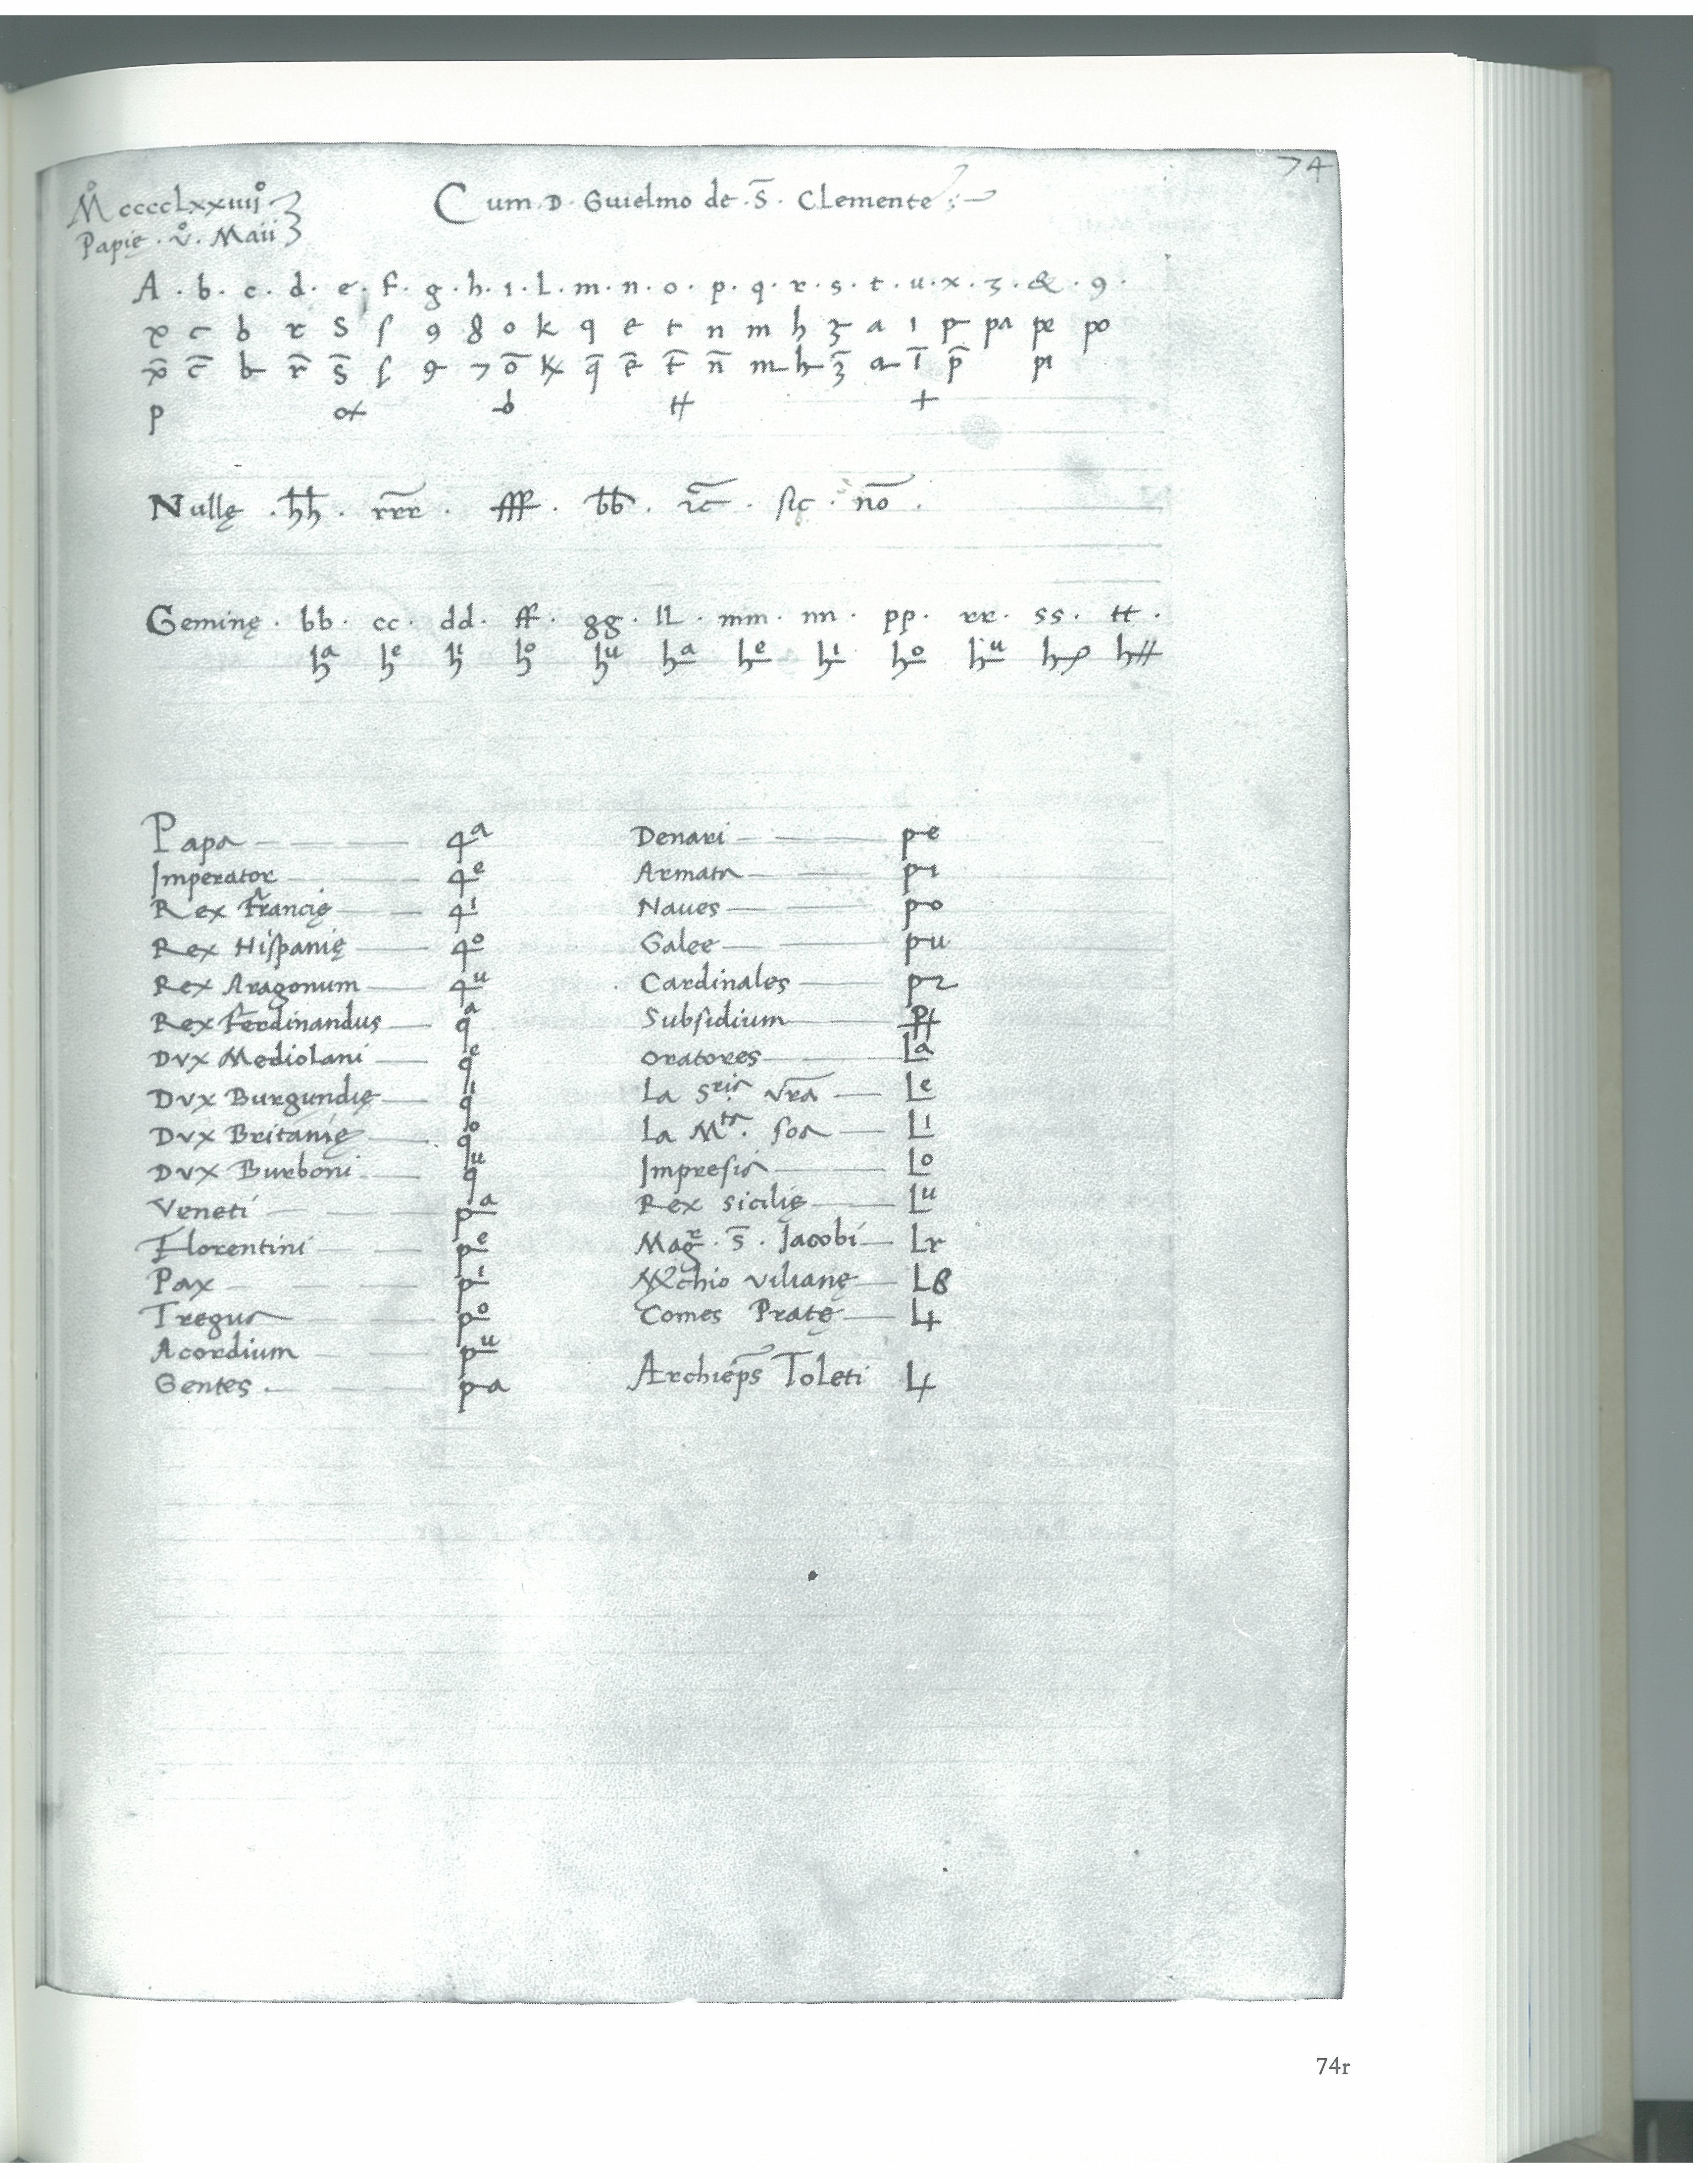 74
Mͦccccᴸxxiiijͦ
Papię . v̊ . Maii
Cum . D . Guielmo de . S̄ . Clemente
A . b . c . d . e . f . g . h . ı . L . m . n . o . p . q . r . s . t . u . x . ʒ . & . 9 .
c b r s ſ 9 8 o k q e t n m h ʒ a ı p pa pe po
c̄ r̄ s̄ ſ ō q̄ ē t̄ n̄ ı̄ p̄ pı
p
Nullę . hh . rrr . fff . bb . . ſic . nō .
Geminę . bb . cc . dd . ff . gg . lL . mm . nn . pp . rr . ss . tt .
hᵃ hᵉ hⁱ hᵒ hᵘ hᵃ hᵉ hⁱ hᵒ hᵘ
Papa qᵃ
Imperator qᵉ
Rex Francię qⁱ
Rex Hiſpanię qᵒ
Rex Aragonum qᵘ
Rex Ferdinandus qᵃ
Dvx MedioLani qᵉ
Dvx Burgundię qⁱ
Dvx Britanię qᵒ
Dvx Burboni qᵘ
Veneti pᵃ
Florentini pᵉ
Pax pⁱ
Tregua pᵒ
Acordium pᵘ
Gentes . pa
Denari pe
Armata pı
Naues po
Galee pu
Cardinales p2
Subſidium
oratores Lᵃ
La Sʳⁱᵃ vr̄a Lᵉ
La Mᵗᵃ . ſoa Lⁱ
Impreſia Lᵒ
Rex sicilię Lᵘ
Magʳ . S̄ . Jacobi Lr
Mchio vilianę L8
Comes Pratę
Archiep̄s ToLeti
74r